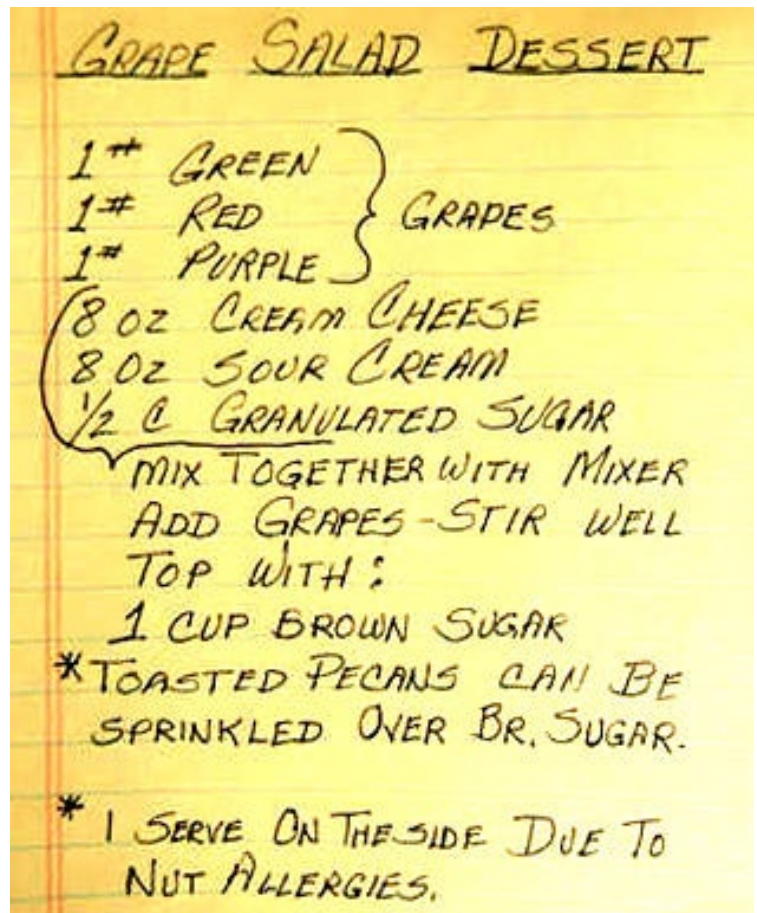 GRAPE SALAD DESSERT
1# GREEN
1# RED GRAPES
1# PURPLE
8 OZ CREAM CHEESE
8 OZ SOUR CREAM
1/2 C GRANULATED SUGAR
MIX TOGETHER WITH MIXER
ADD GRAPES - STIR WELL
TOP WITH:
1 CUP BROWN SUGAR
* TOASTED PECANS CAN BE
SPRINKLED OVER BR. SUGAR.
* I SERVE ON THE SIDE DUE TO
NUT ALLERGIES.